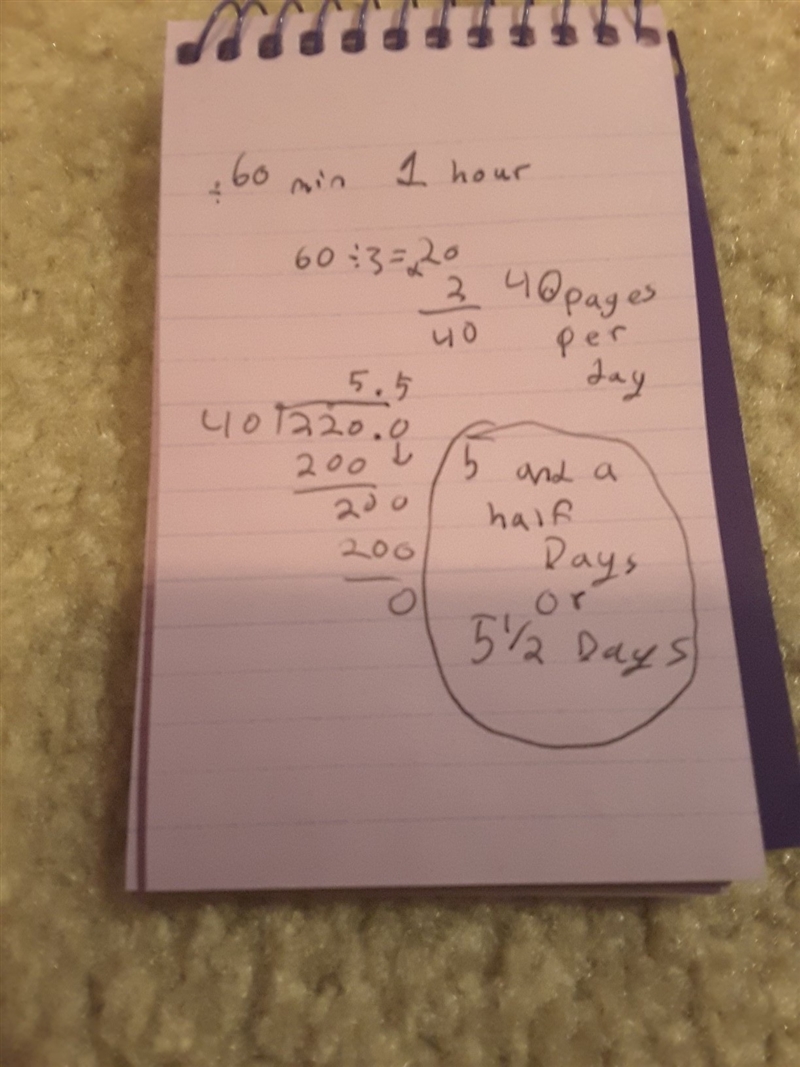 ÷60 min 1 hour
60÷3=20
x 2
40
40 pages
per
day
5.5
40 220.0
200 ↓
200
200
0
5 and a
half
Days
or
5 1/2 Days